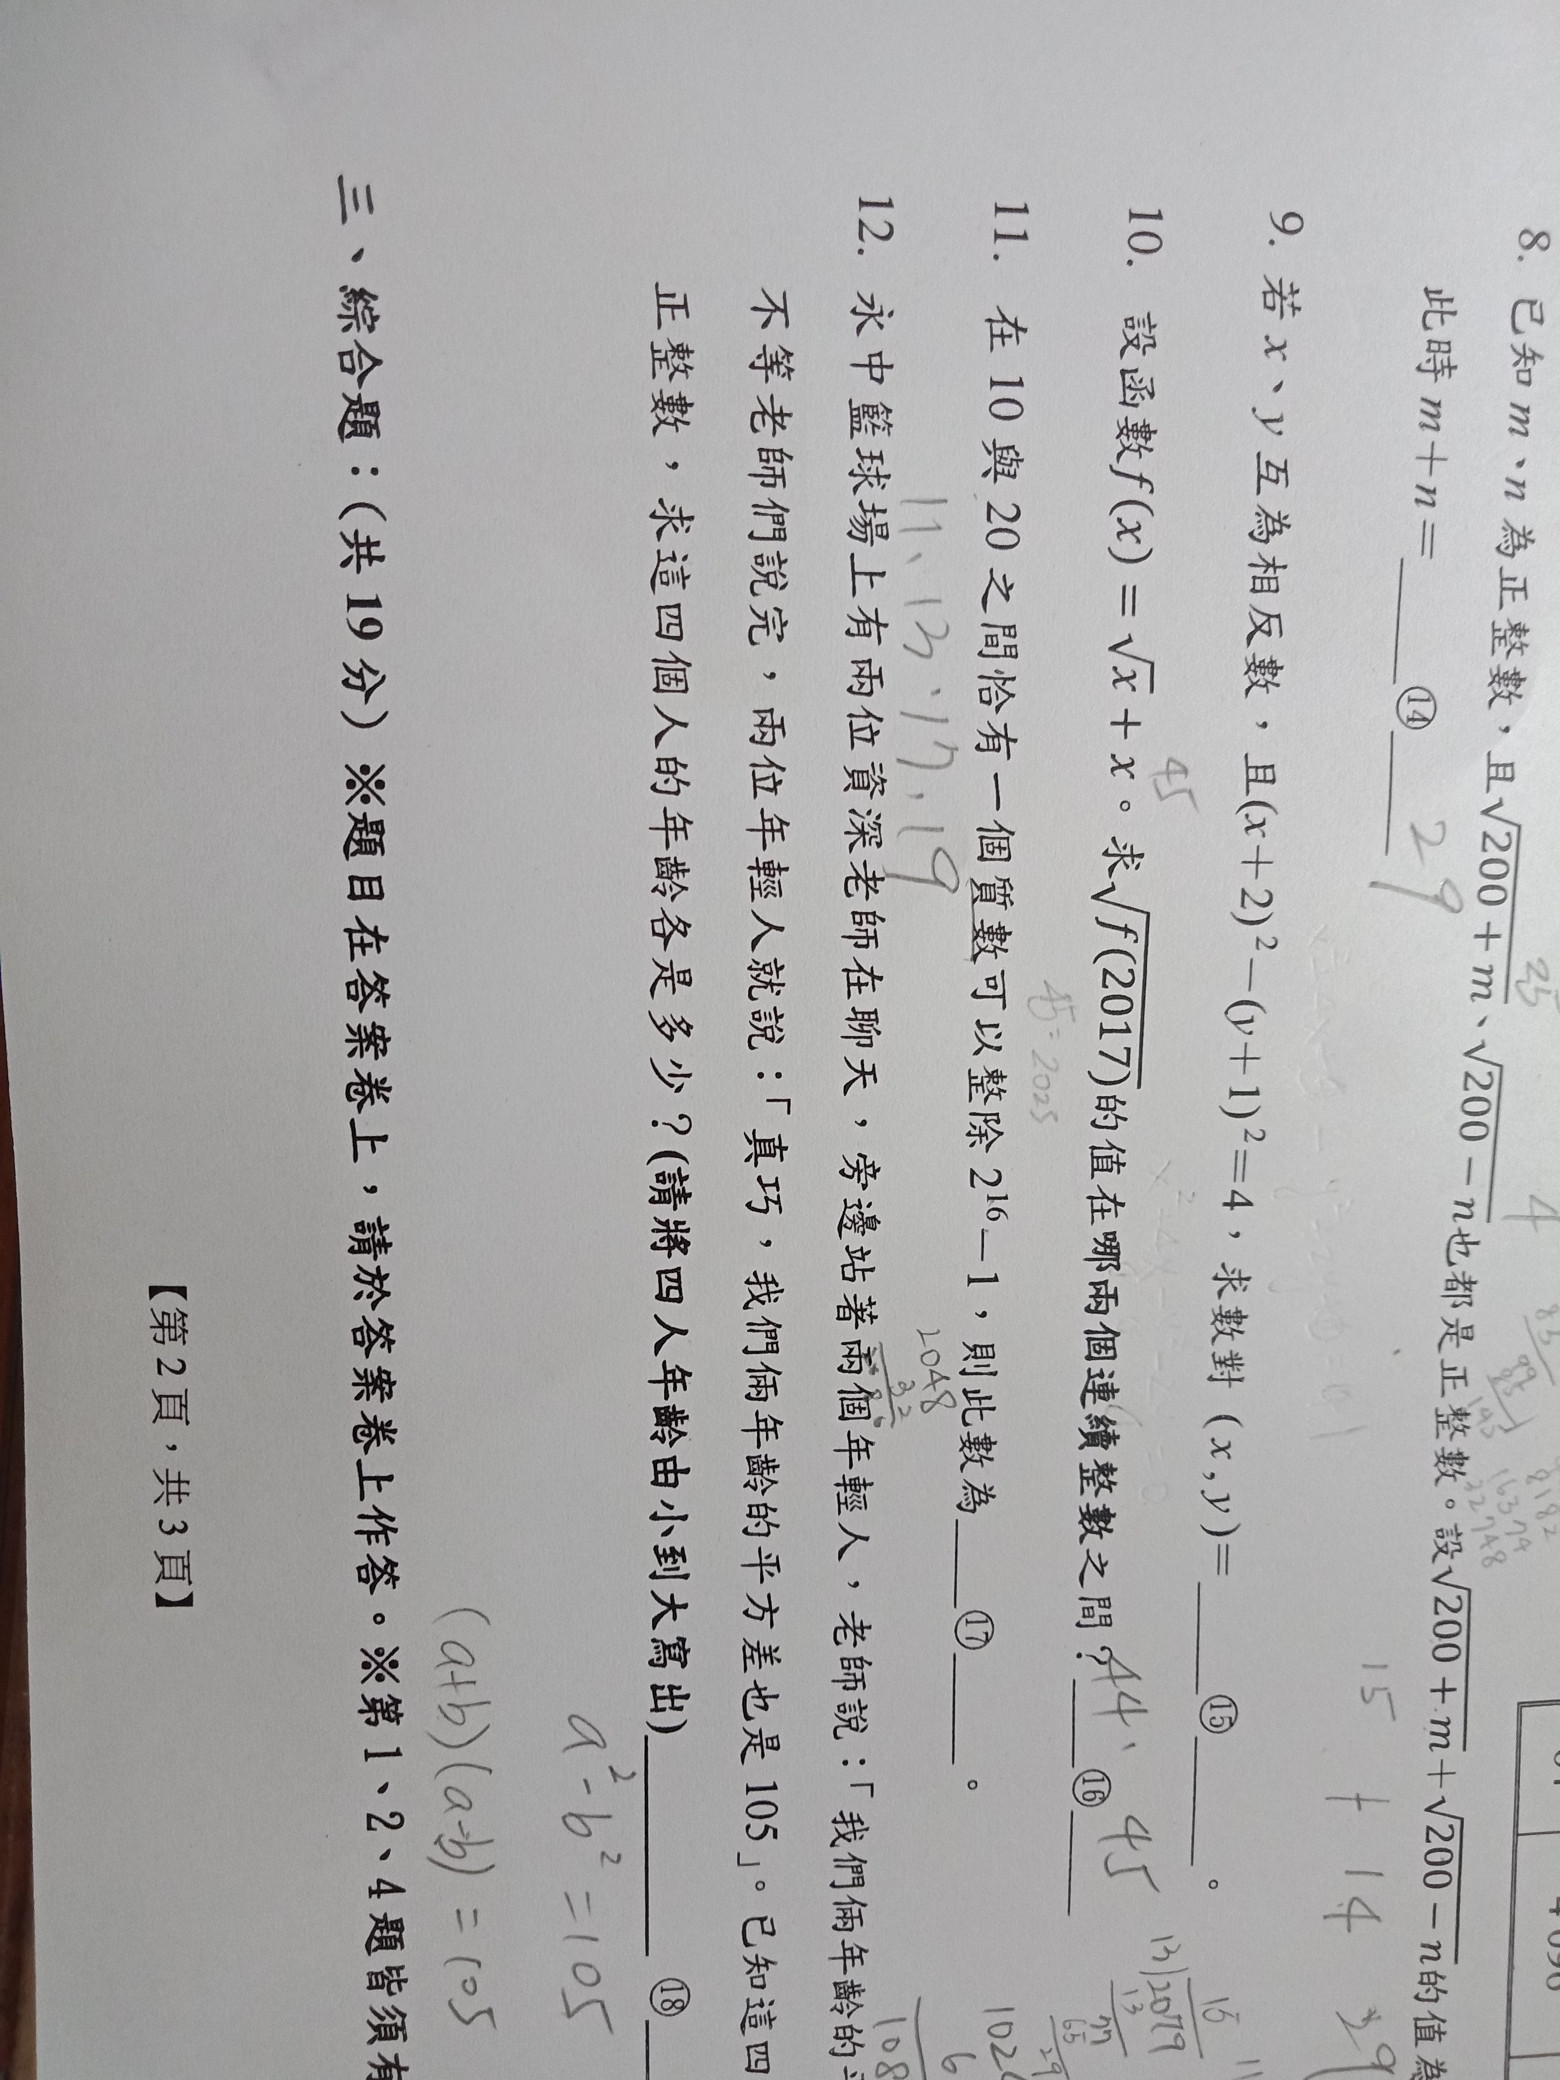 8. 已知 m、n 為正整數,且√200+m、√200−n也都是正整數。設√200+m+√200−n的值為
此時 m+n=______⑭______
29
25
4
15 + 14
29
9. 若 x、y 互為相反數,且(x+2)²−(y+1)²=4,求數對 (x,y)=______⑮______。
45
10. 設函數f(x)=√x+x。求√f(2017)的值在哪兩個連續整數之間?______⑯______
44、45
45²=2025
11. 在 10 與 20 之間恰有一個質數可以整除 2¹⁶−1,則此數為______⑰______。
11、13、17、19
2048
32
12. 永中籃球場上有兩位資深老師在聊天,旁邊站著兩個年輕人,老師說:「我們倆年齡的
不等老師們說完,兩位年輕人就說:「真巧,我們倆年齡的平方差也是 105」。已知這四
正整數,求這四個人的年齡各是多少?(請將四人年齡由小到大寫出)______⑱______
a²-b²=105
(a+b)(a-b)=105
三、綜合題:(共 19 分)※題目在答案卷上,請於答案卷上作答。※第 1、2、4 題皆須有
【第 2 頁,共 3 頁】